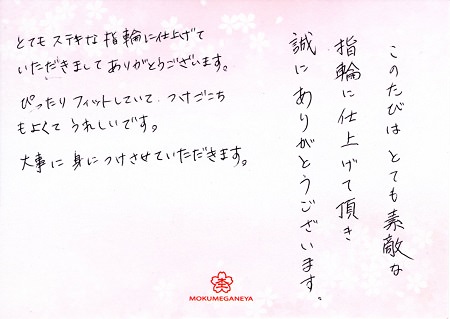 このたびは とても素敵な
指輪に仕上げて頂き
誠にありがとうございます。
とても ステキな 指輪に仕上げて
いただきまして ありがとうございます。
ぴったり フィットしていて、つけごこち
もよくて うれしいです。
大事に 身につけさせていただきます。
MOKUMEGANEYA